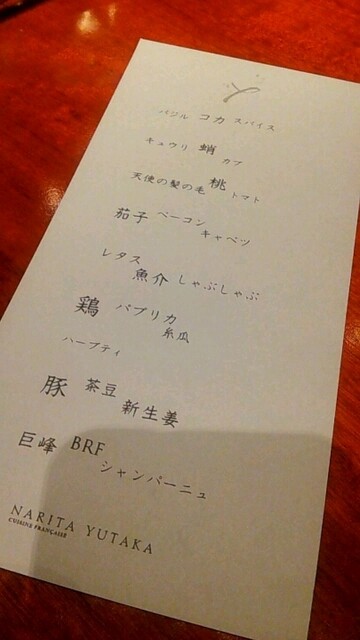 バジル コカ スパイス
キュウリ 蛸 カブ
天使の髪の毛 桃 トマト
茄子 ベーコン キャベツ
レタス 魚介 しゃぶしゃぶ
鶏 パプリカ 糸瓜
ハーブティ
豚 茶豆 新生姜
巨峰 BRF シャンパーニュ
NARITA YUTAKA
CUISINE FRANÇAISE